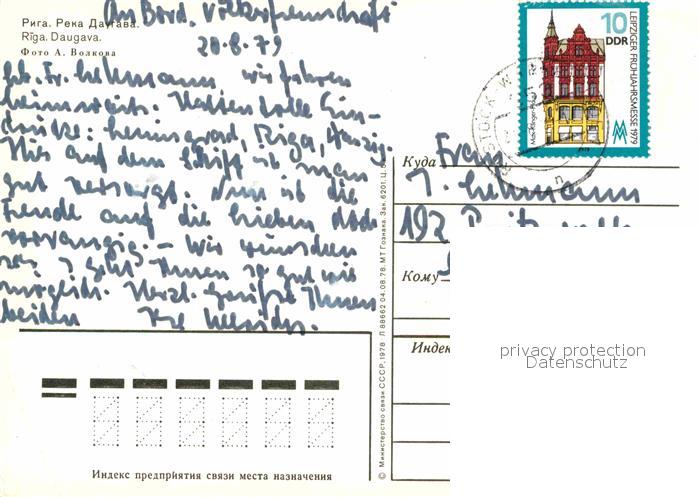 An Bord, Völkerfreundschaft
Рига. Река Даугава.
Rīga. Daugava.
Фото А. Волкова
20.8.79
Fr. Lehmann, wir fahren
heimwärts. Hatten tolle Ein-
drücke: Leningrad, Riga, Danzig.
Hier auf dem Schiff ist man
gut versorgt. Nun ist die
Freude auf die Lieben
vorrangig. – Wir wünschen
es geht Ihnen so gut wie
möglich. Herzl. Grüße Ihnen
beiden Ihre
10
DDR
LEIPZIGER FRÜHJAHRSMESSE 1979
Куда
Frau
J. Lehmann
192
Кому
Индек
privacy protection
Datenschutz
© Министерство связи СССР, 1978 Л 88662 04.08.78. МТ Гознака. Зак. 6201. Ц.
Индекс предприятия связи места назначения